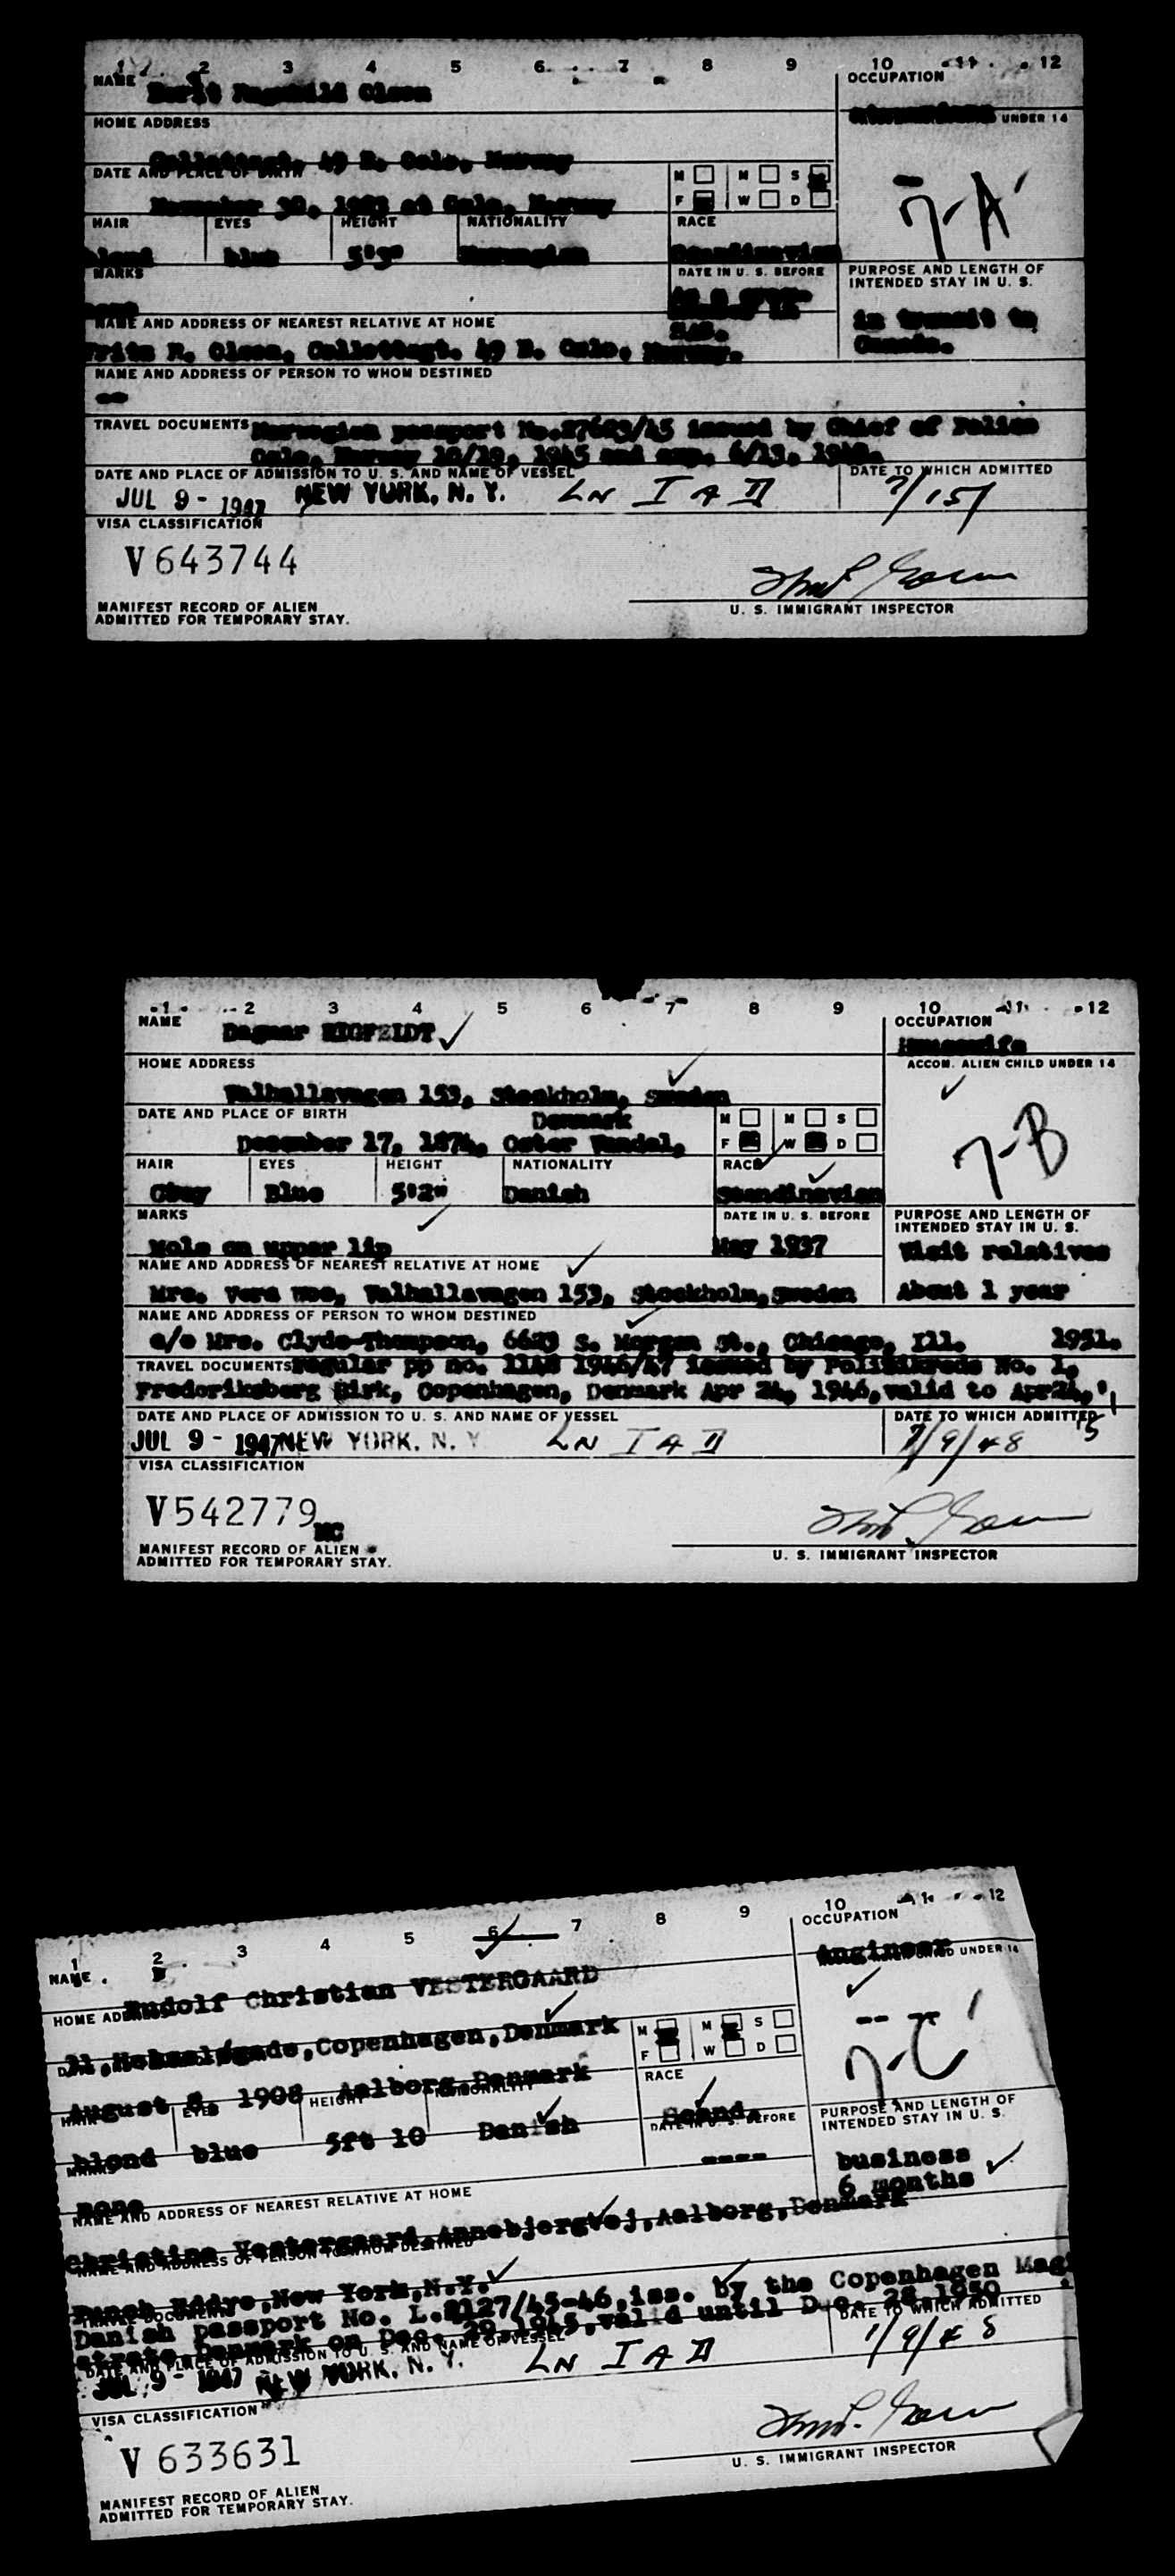 1 2 3 4 5 6 7 8 9 10 11 12
NAME
OCCUPATION
Olsen
UNDER 14
HOME ADDRESS
49 B. Oslo, Norway
DATE AND PLACE OF BIRTH
at Oslo, Norway
M M S
F W D
7-A
HAIR EYES HEIGHT NATIONALITY RACE
blond blue 5'3" Norwegian Scandinavian
MARKS
DATE IN U. S. BEFORE
PURPOSE AND LENGTH OF
INTENDED STAY IN U. S.
in transit to
Canada.
NAME AND ADDRESS OF NEAREST RELATIVE AT HOME
Fritz R. Olsen, 49 B. Oslo, Norway.
NAME AND ADDRESS OF PERSON TO WHOM DESTINED
--
TRAVEL DOCUMENTS Norwegian passport issued by Chief of Police
Oslo, Norway
DATE AND PLACE OF ADMISSION TO U. S. AND NAME OF VESSEL
DATE TO WHICH ADMITTED
JUL 9 - 1947 NEW YORK, N. Y. LN I A D 7/15/
VISA CLASSIFICATION
V 643744
MANIFEST RECORD OF ALIEN
ADMITTED FOR TEMPORARY STAY.
U. S. IMMIGRANT INSPECTOR
1 2 3 4 5 6 7 8 9 10 11 12
NAME
Dagmar
OCCUPATION
Housewife
HOME ADDRESS
ACCOM. ALIEN CHILD UNDER 14
Valhallavagen 153, Stockholm, Sweden
DATE AND PLACE OF BIRTH
Denmark
December 17, 1874, Oster
M M S
F W D
7-B
HAIR EYES HEIGHT NATIONALITY RACE
Gray Blue 5'2" Danish Scandinavian
MARKS
DATE IN U. S. BEFORE
PURPOSE AND LENGTH OF
INTENDED STAY IN U. S.
Mole on upper lip
May 1937
Visit relatives
NAME AND ADDRESS OF NEAREST RELATIVE AT HOME
Mrs. Vera Valhallavagen 153, Stockholm, Sweden
About 1 year
NAME AND ADDRESS OF PERSON TO WHOM DESTINED
c/o Mrs. Clyde Thompson, S. Morgan St., Chicago, Ill. 1951.
TRAVEL DOCUMENTS regular pp no. 1946/47 issued by No. 1,
Frederiksberg Birk, Copenhagen, Denmark Apr 24, 1946, valid to Apr 24,
DATE AND PLACE OF ADMISSION TO U. S. AND NAME OF VESSEL
DATE TO WHICH ADMITTED
JUL 9 - 1947 NEW YORK, N. Y LN I A D 7/9/48
VISA CLASSIFICATION
V542779
MC
MANIFEST RECORD OF ALIEN
ADMITTED FOR TEMPORARY STAY.
U. S. IMMIGRANT INSPECTOR
1 2 3 4 5 6 7 8 9 10 11 12
NAME
OCCUPATION
Rudolf Christian VESTERGAARD
Engineer
UNDER 14
HOME ADDRESS
Copenhagen, Denmark
M M S
F W D
7-C
August 8, 1908 Aalborg, Denmark
HAIR EYES HEIGHT NATIONALITY RACE
blond blue 5ft 10 Danish Scand.
MARKS
DATE IN U. S. BEFORE
PURPOSE AND LENGTH OF
INTENDED STAY IN U. S.
none
----
business
6 months
NAME AND ADDRESS OF NEAREST RELATIVE AT HOME
Christine Vestergaard, Annebjergvej, Aalborg, Denmark
NAME AND ADDRESS OF PERSON TO WHOM DESTINED
New York, N.Y.
TRAVEL DOCUMENTS
Danish passport No. L. iss. by the Copenhagen Magi
strate, Denmark on Dec. 29, 1945, valid until Dec. 28, 1950
DATE AND PLACE OF ADMISSION TO U. S. AND NAME OF VESSEL
DATE TO WHICH ADMITTED
JUL 9 - 1947 NEW YORK, N. Y. LN I A D 1/9/48
VISA CLASSIFICATION
V 633631
MANIFEST RECORD OF ALIEN
ADMITTED FOR TEMPORARY STAY.
U. S. IMMIGRANT INSPECTOR